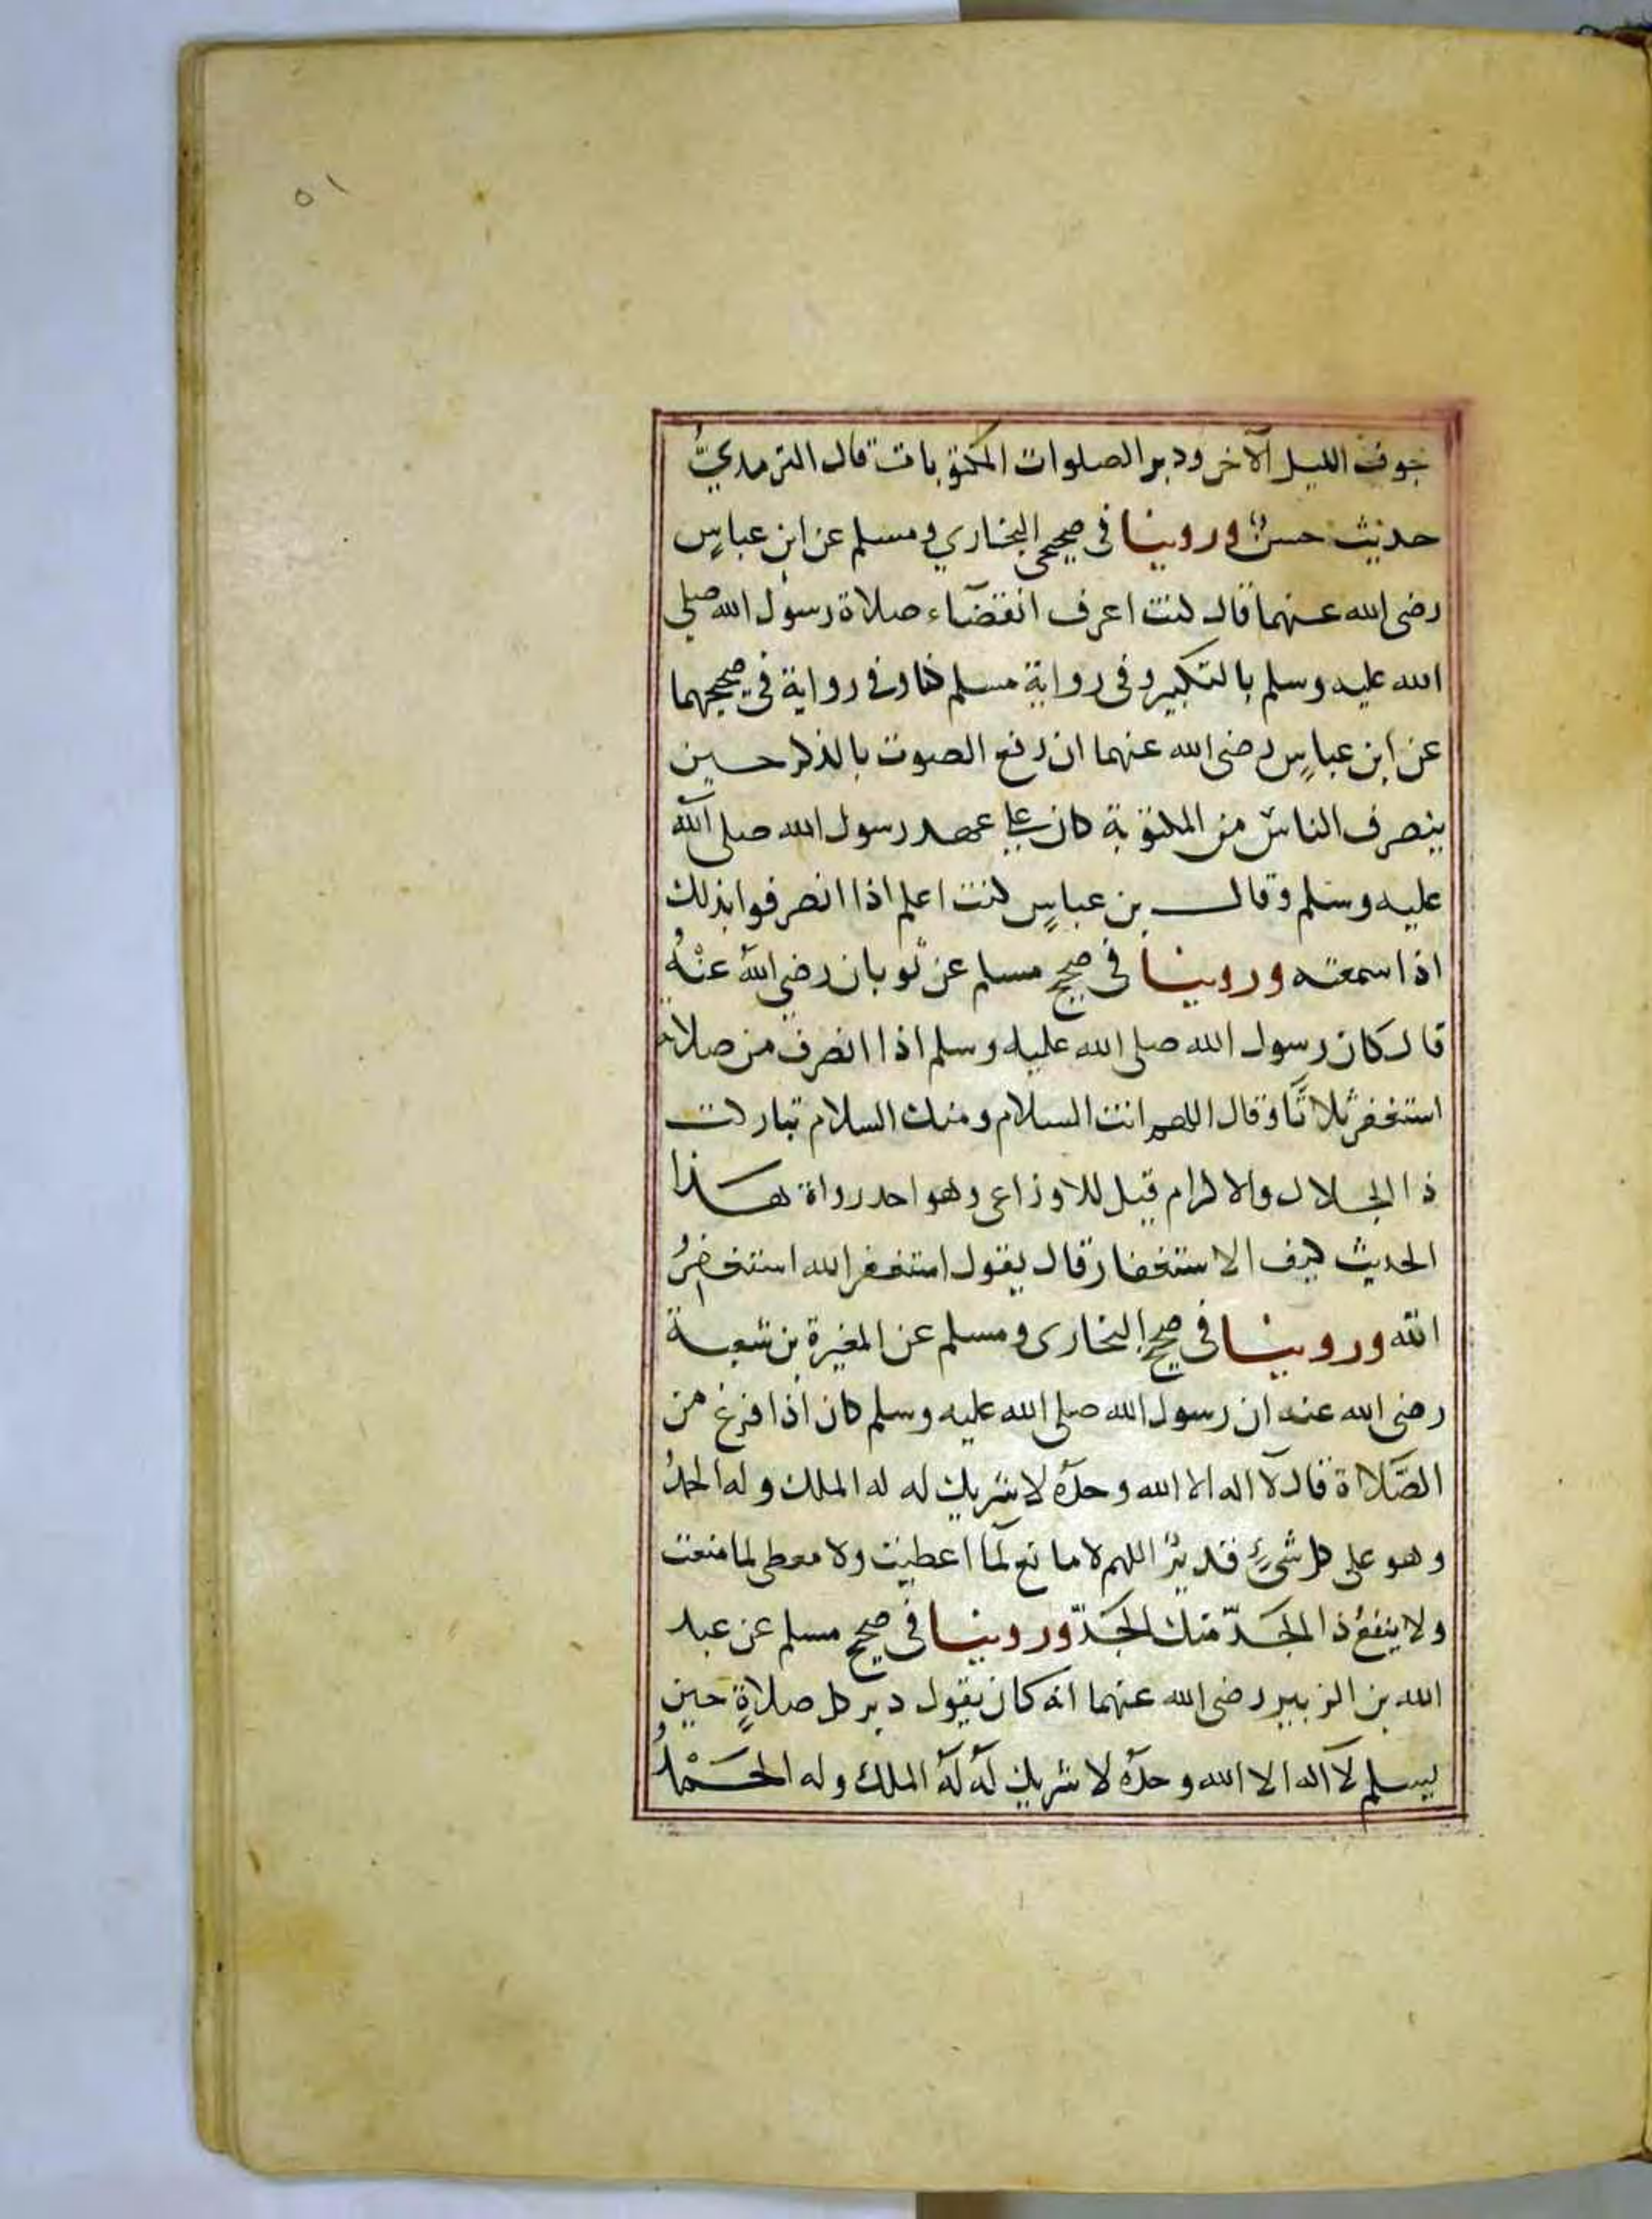 ٥١
جوف الليل الآخر ودبر الصلوات المكتوبات قال الترمذيُّ
حديث حسنٌ وروينا في صحيحي البخاري ومسلم عن ابن عباسٍ
رضى الله عنهما قال كنت اعرف انقضآء صلاة رسول الله صلى
الله عليه وسلم بالتكبير وفى رواية مسلم كنا وفى رواية فى صحيحهما
عن ابن عباسٍ رضى الله عنهما ان رفع الصوت بالذكر حين
ينصرف الناس من المكتوبة كان على عهد رسول الله صلى الله
عليه وسلم وقال بن عباسٍ كنت اعلم اذا انصرفوا بذلك
اذا سمعته وروينا فى صحيح مسلم عن ثوبان رضي الله عنْهُ
قال كان رسول الله صلى الله عليه وسلم اذا انصرف من صلاته
استغفر ثلاثًا وقال اللهم انت السلام ومنك السلام تباركت
ذا الجلال والاكرام قيل للاوزاعى وهو احد رواة هذا
الحديث كيف الاستغفار قال يقول استغفر الله استغفرُ
الله وروينا فى صحيح البخارى ومسلم عن المغيرة بن شعبة
رضى الله عنه ان رسول الله صلى الله عليه وسلم كان اذا فرغ من
الصَّلااة قال لآ اله الا الله وحدهُ لا شريك له له الملك وله الحمدُ
وهو على كل شىءٍ قديرٌ اللهم لا مانع لمَا اعطيت ولا معطى لما منعت
ولا ينفعُ ذا الجَدّ منك الجَدّ وروينا فى صحيح مسلم عن عبد
الله بن الزبير رضى الله عنهما انه كان يقول دبر كل صلاةٍ حين
يسلم لآ اله الا الله وحدهُ لا شريك لهُ لهُ الملك وله الحَمْدُ